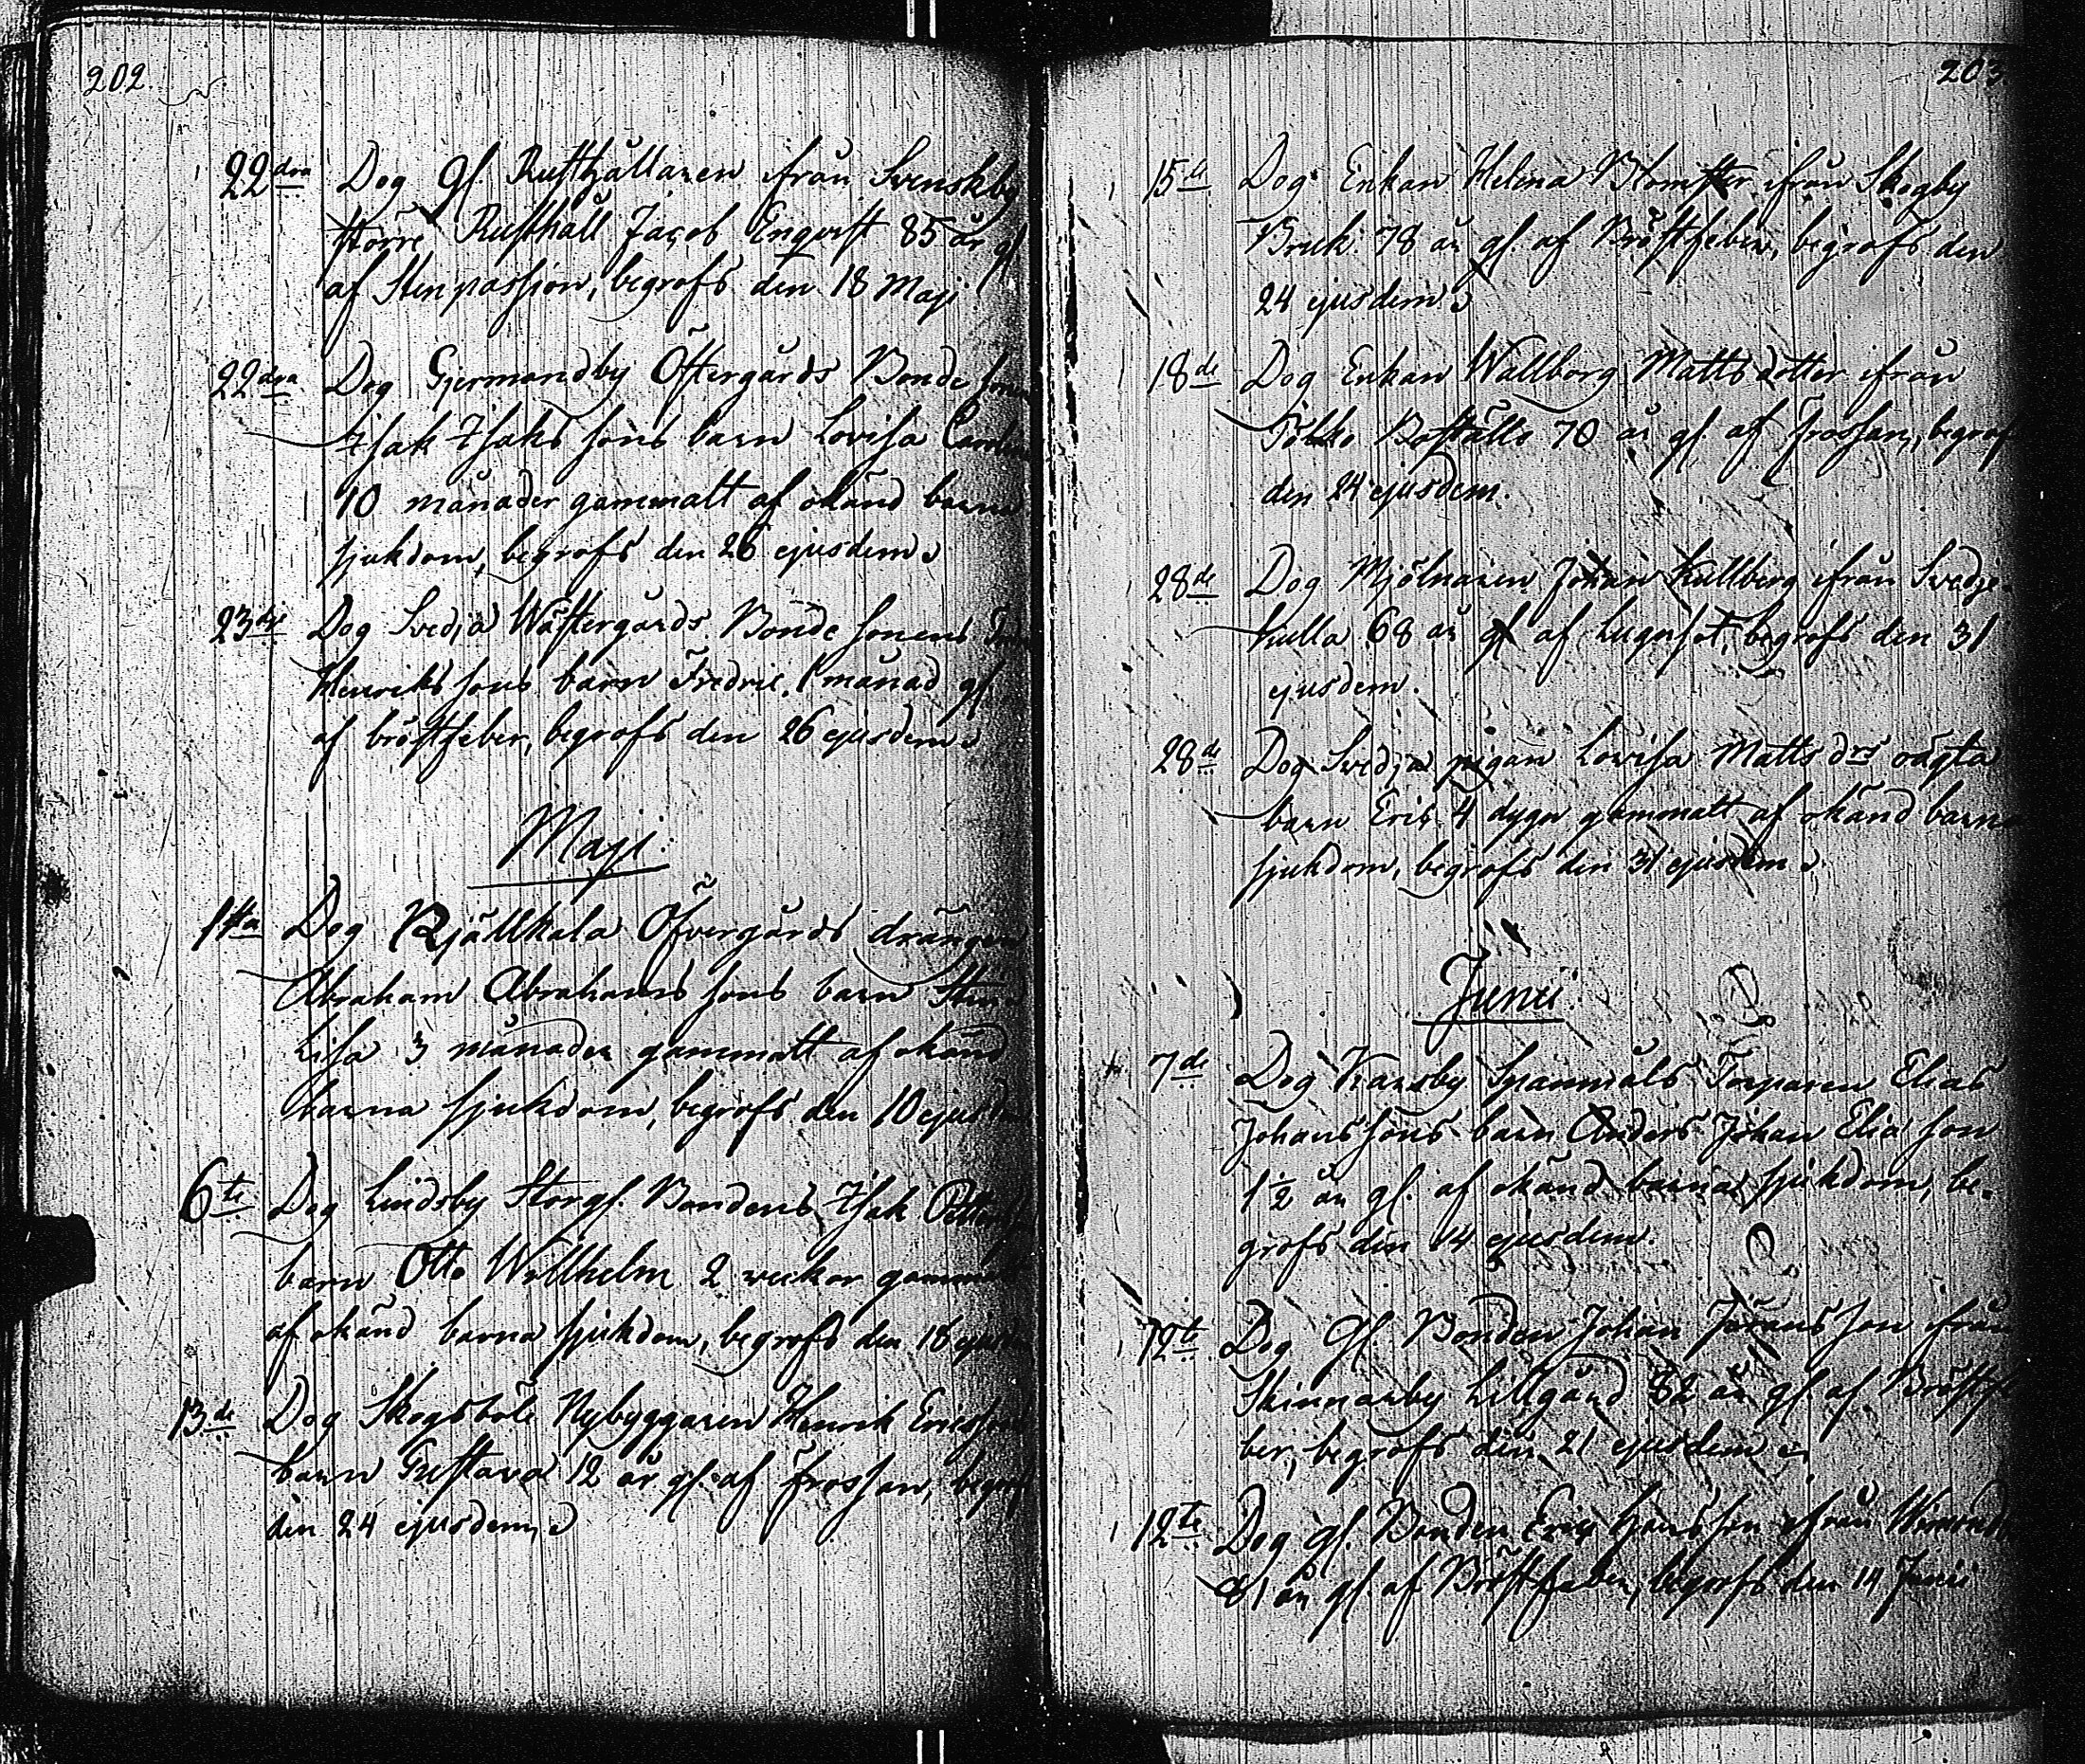 202.
22dra Dog gl. Rusthållaren ifrån Svenskby
större Rusthåll Jacob Enqvist 85 år gl
af Stenpassion, begrofs den 18 Maji
22dra Dog Germundby Östergårds Bonde
Isak Isaks sons barn Lovisa
10 månader gammalt af okänd barna
sjukdom, begrofs den 26 ejusdem
23dje Dog Svedja Wästergårds Bonde sonens
Henriks sons barn Fredric 1 månad gl.
af bröstfeber, begrofs den 26 ejusdem
Maji
1sta Dog Kjällkala Öfvergårds drängen
Abraham Abrahams sons barn
Lisa 3 månader gammalt af okänd
barna sjukdom, begrofs den 10
6te Dog Lindsby Storgl. Bondens Isak
barn Otto Willhelm 2 veckor
af okänd barna sjukdom, begrofs den 18
13de Dog Skogsböle Nybyggaren Henrik
barn Gustava 12 år gl. af frossan,
den 24 ejusdem
203
15de Dog Enkan Helena Blomster ifrån Skogby
Bruk 78 år gl. af Bröstfeber, begrofs den
24 ejusdem
18de Dog Enkan Wallborg Matts dotter ifrån
Boställe 70 år gl. af frossan,
den 24 ejusdem.
28de Dog Mjölnaren Johan Kullberg ifrån Svedje-
kulla 68 år gl af Lugnsot, begrofs den 31
ejusdem.
28de Dog Svedja pigan Lovisa Matts drs oägta
barn Eric 4 dygn gammalt af okänd barna
sjukdom, begrofs den 31 ejusdem
Junii
7de Dog Torparen Elias
Johans sons barn Anders Johan Elia son
1½ år gl. af okänd barna sjukdom, be-
grofs den 14 ejusdem.
12te Dog gl. Bonden Johan Jörans son ifrån
Skinnarby Lillgård 82 år gl. af Bröstfe
ber, begrofs den 21 ejusdem
12te Dog gl. Bonden Eric Hans son ifrån
81 år gl. af Bröstfeber, begrofs den 14 Junii